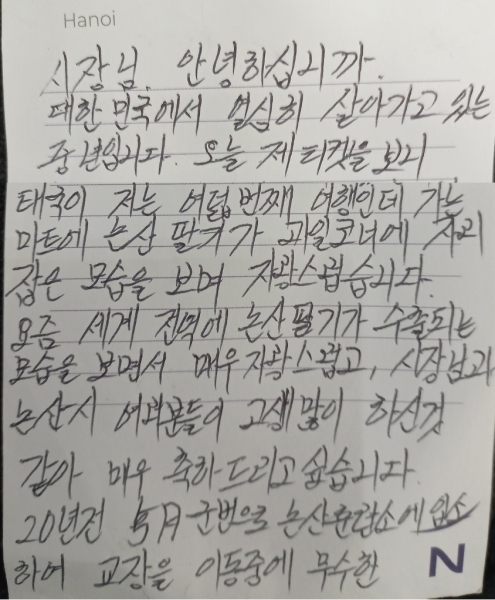 Hanoi
시장님. 안녕하십니까.
대한민국에서 열심히 살아가고 있는
중년입니다. 오늘 제 티켓을 보니
태국이 저는 여덟번째 여행인데 가는
마트에 논산 딸기가 과일코너에 자리
잡은 모습을 보며 자랑스럽습니다.
요즘 세계 전역에 논산딸기가 수출되는
모습을 보면서 매우 자랑스럽고, 시장님과
논산시 여러분들이 고생많이 하신것
같아 매우 축하드리고 싶습니다.
20년전 5月 군번으로 논산훈련소에 입소
하여 교장을 이동중에 무수한
N